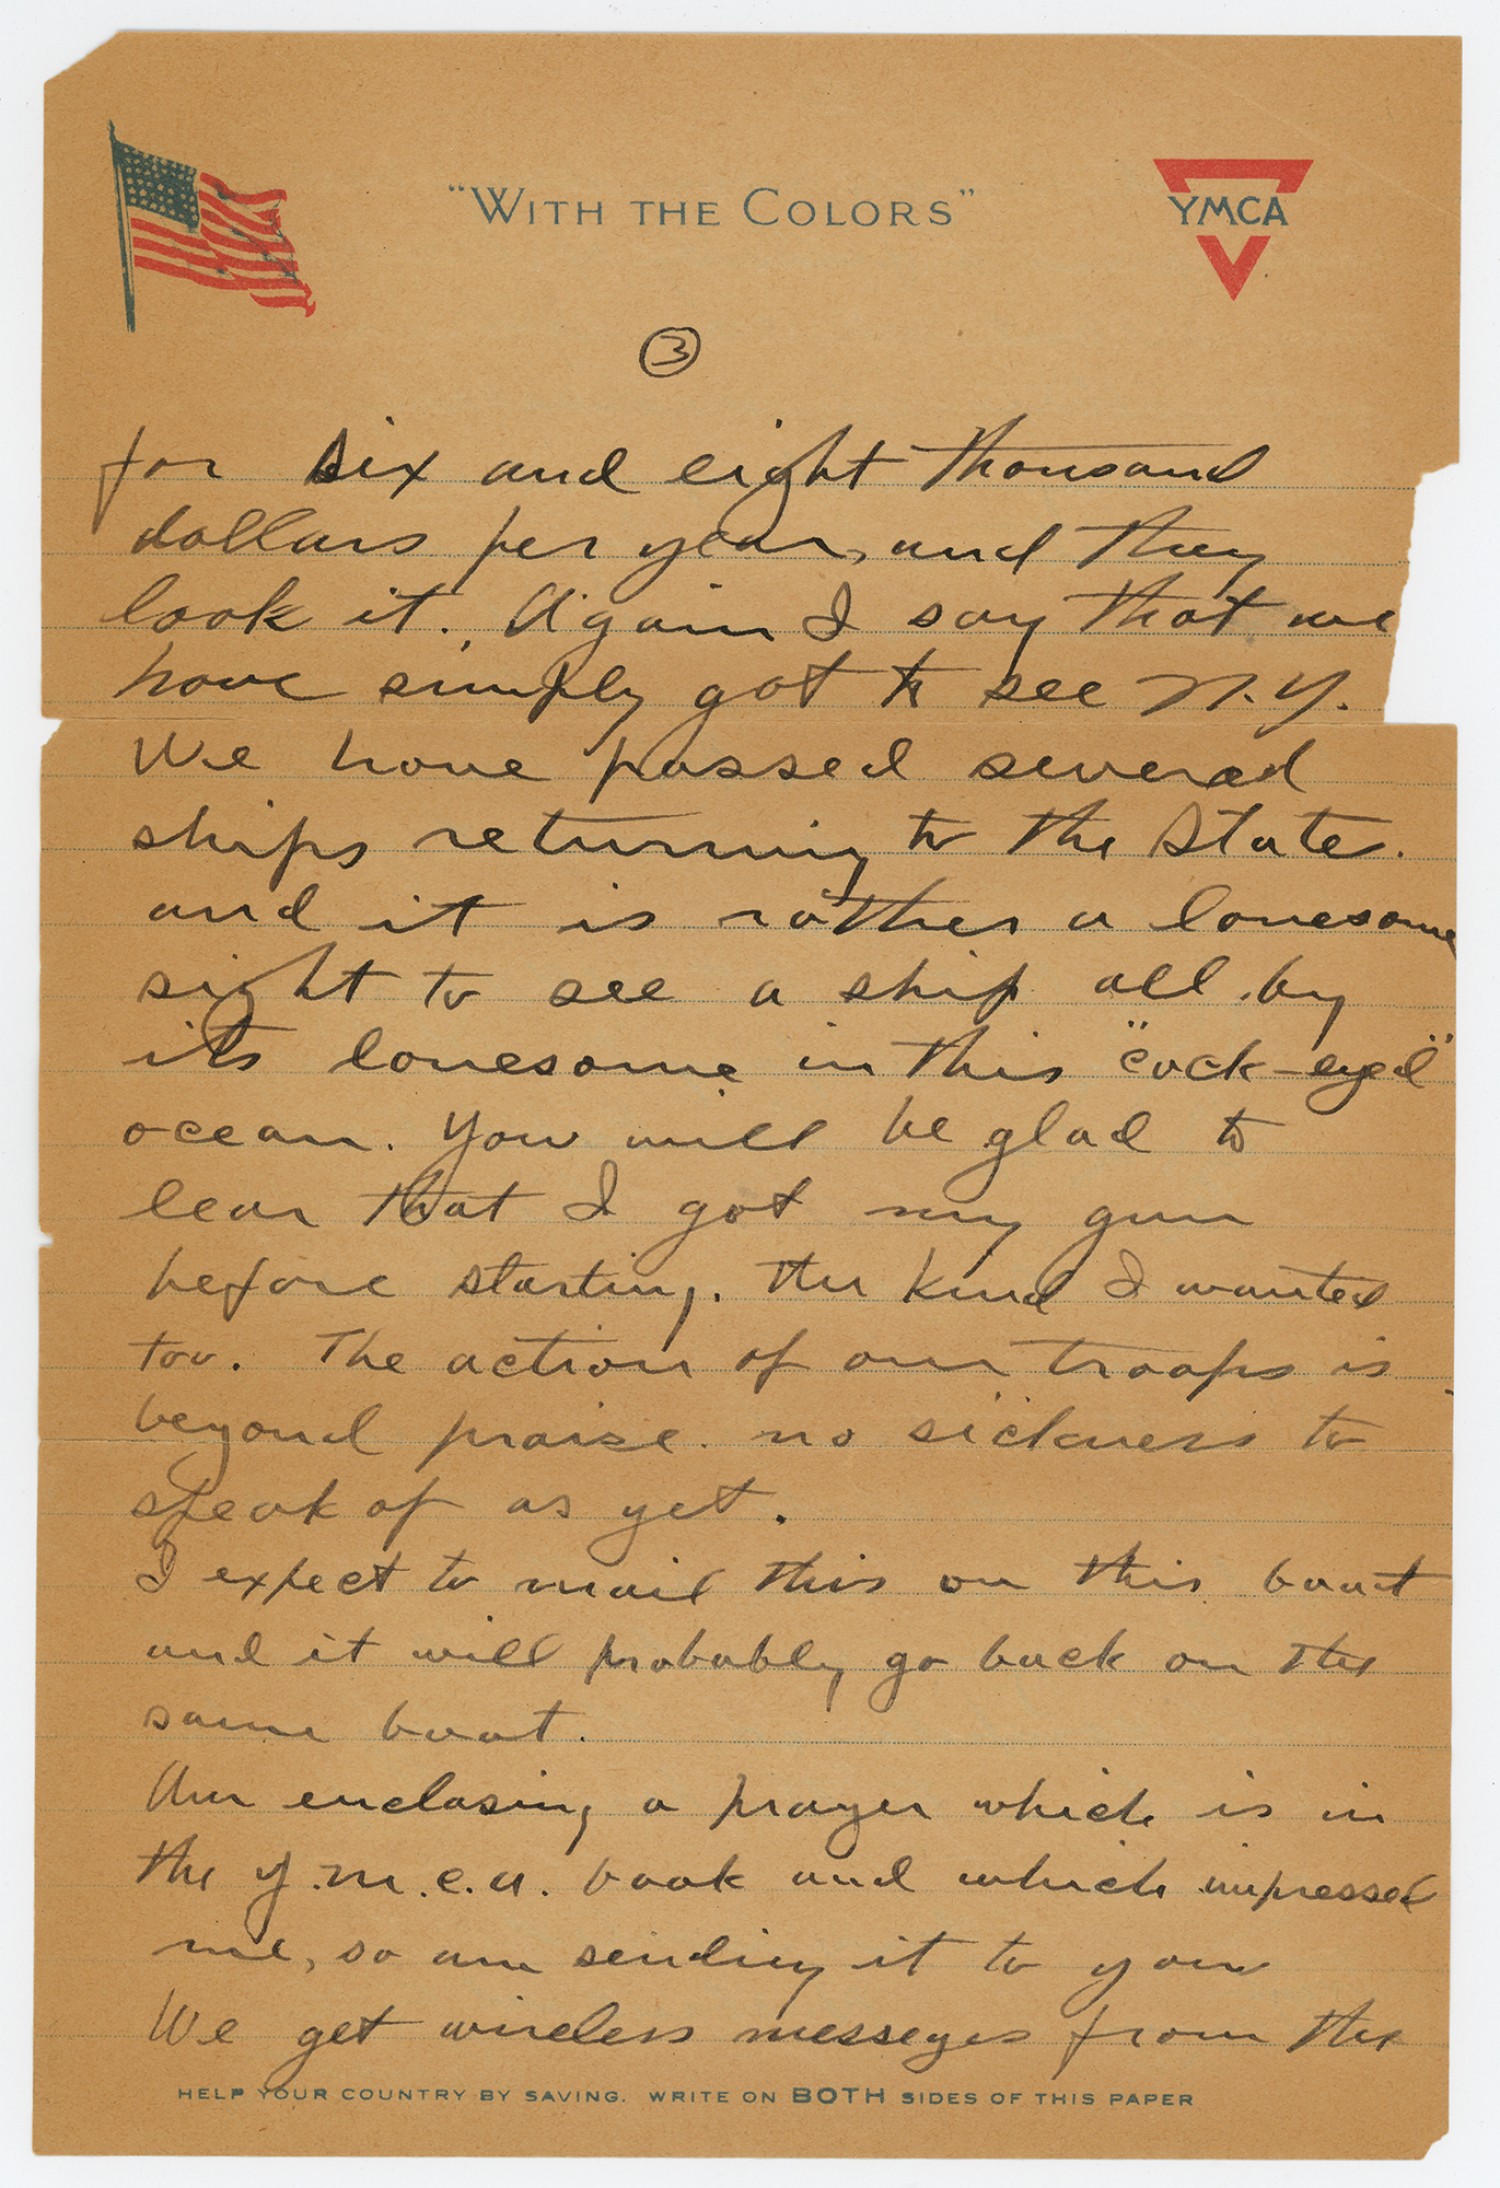 "WITH THE COLORS"
YMCA
3
for six and eight thousand
dollars per year, and they
look it. Again I say that we
have simply got to see N.Y.
We have passed several
ships returning to the States.
and it is rather a lonesome
sight to see a ship all by
its lonesome in this "cock-eyed"
ocean. You will be glad to
lear that I got my gun
before starting. the kind I wanted
too. The action of our troops is
beyond praise. no sickness to
speak of as yet.
I expect to mail this on this boat
and it will probably go back on the
same boat.
Am enclosing a prayer which is in
the Y.M.C.A. book and which impressed
me, so am sending it to you
We get wireless messeges from the
HELP YOUR COUNTRY BY SAVING. WRITE ON BOTH SIDES OF THIS PAPER